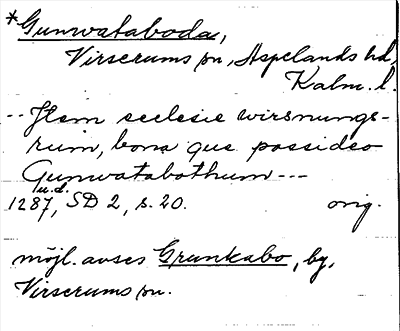 *Gunwataboda,
Virserums sn, Aspelands hd,
Kalm. l.
-- Item ecclesie wirsnungs-
rum, bona que possideo
Gunwatabothum ---
u.d.
1287, SD 2, s. 20. orig.
möjl. avses Grunkabo, by,
Virserums sn.